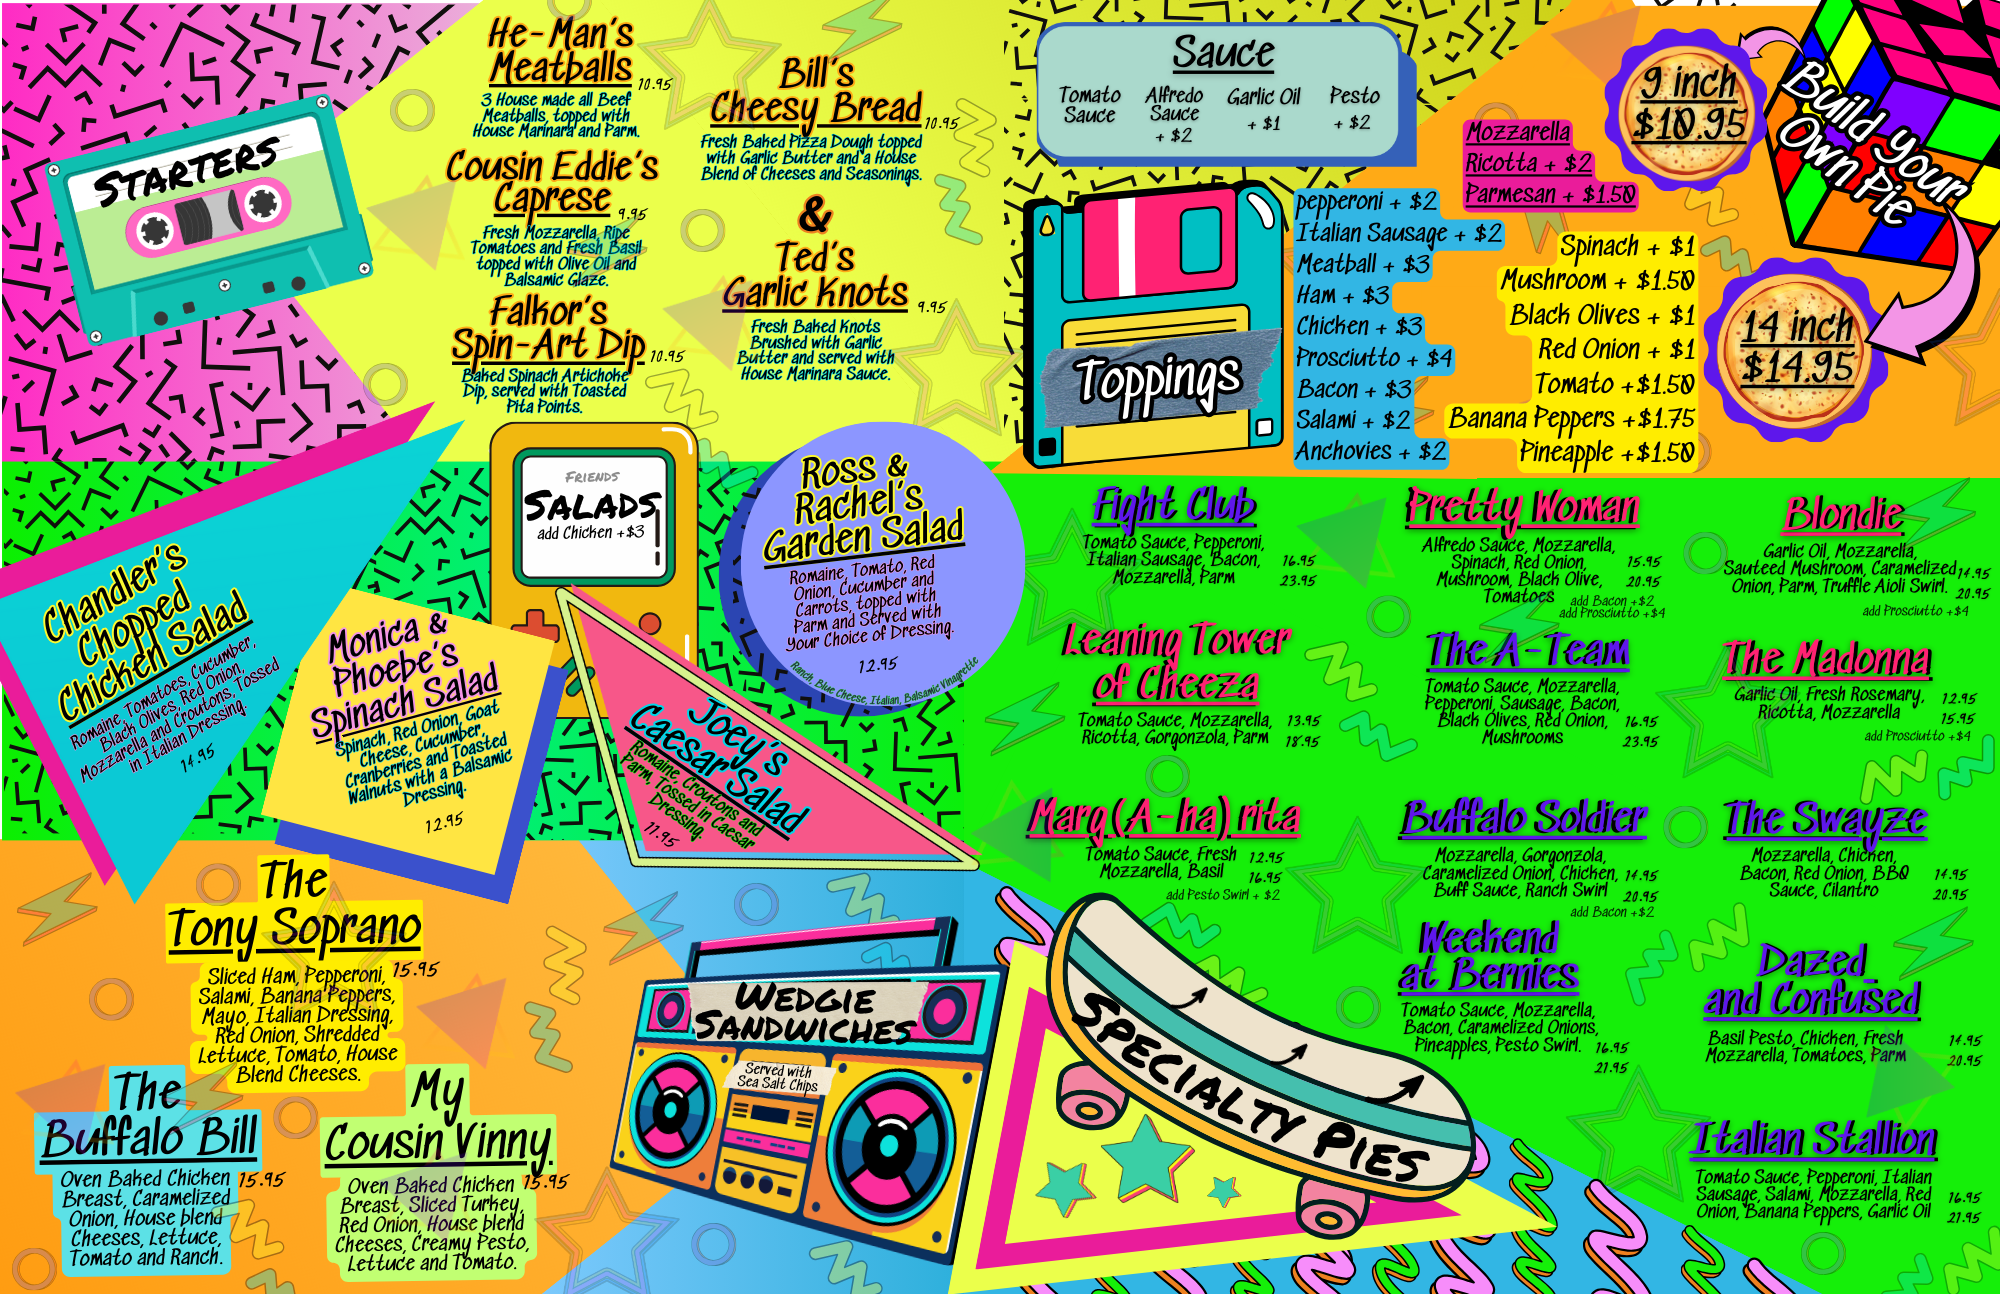 STARTERS
He-Man's
Meatballs 10.95
3 House made all Beef
Meatballs, topped with
House Marinara and Parm.
Cousin Eddie's
Caprese 9.95
Fresh Mozzarella, Ripe
Tomatoes and Fresh Basil
topped with Olive Oil and
Balsamic Glaze.
Falkor's
Spin-Art Dip 10.95
Baked Spinach Artichoke
Dip, served with Toasted
Pita Points.
Bill's
Cheesy Bread 10.95
Fresh Baked Pizza Dough topped
with Garlic Butter and a House
Blend of Cheeses and Seasonings.
&
Ted's
Garlic Knots 9.95
Fresh Baked Knots
Brushed with Garlic
Butter and served with
House Marinara Sauce.
Sauce
Tomato
Sauce
Alfredo
Sauce
+ $2
Garlic Oil
+ $1
Pesto
+ $2
Build Your
Own Pie
9 inch
$10.95
14 inch
$14.95
Toppings
Mozzarella
Ricotta + $2
Parmesan + $1.50
pepperoni + $2
Italian Sausage + $2
Meatball + $3
Ham + $3
Chicken + $3
Prosciutto + $4
Bacon + $3
Salami + $2
Anchovies + $2
Spinach + $1
Mushroom + $1.50
Black Olives + $1
Red Onion + $1
Tomato +$1.50
Banana Peppers +$1.75
Pineapple +$1.50
FRIENDS
SALADS
add Chicken +$3
Chandler's
Chopped
Chicken Salad
Romaine, Tomatoes, Cucumber,
Black Olives, Red Onion,
Mozzarella and Croutons, Tossed
in Italian Dressing.
14.95
Monica &
Phoebe's
Spinach Salad
Spinach, Red Onion, Goat
Cheese, Cucumber,
Cranberries and Toasted
Walnuts with a Balsamic
Dressing.
12.95
Joey's
Caesar Salad
Romaine, Croutons and
Parm, Tossed in Caesar
Dressing.
11.95
Ross &
Rachel's
Garden Salad
Romaine, Tomato, Red
Onion, Cucumber and
Carrots, topped with
Parm and Served with
Your Choice of Dressing.
12.95
Ranch, Blue Cheese, Italian, Balsamic Vinagrette
WEDGIE
SANDWICHES
Served with
Sea Salt Chips
The
Tony Soprano
Sliced Ham, Pepperoni, 15.95
Salami, Banana Peppers,
Mayo, Italian Dressing,
Red Onion, Shredded
Lettuce, Tomato, House
Blend Cheeses.
The
Buffalo Bill
Oven Baked Chicken 15.95
Breast, Caramelized
Onion, House blend
Cheeses, Lettuce,
Tomato and Ranch.
My
Cousin Vinny.
Oven Baked Chicken 15.95
Breast, Sliced Turkey,
Red Onion, House blend
Cheeses, Creamy Pesto,
Lettuce and Tomato.
SPECIALTY PIES
Fight Club
Tomato Sauce, Pepperoni,
Italian Sausage, Bacon, 16.95
Mozzarella, Parm 23.95
Pretty Woman
Alfredo Sauce, Mozzarella,
Spinach, Red Onion, 15.95
Mushroom, Black Olive, 20.95
Tomatoes add Bacon +$2
add Prosciutto +$4
Blondie
Garlic Oil, Mozzarella,
Sauteed Mushroom, Caramelized 14.95
Onion, Parm, Truffle Aioli Swirl. 20.95
add Prosciutto +$4
Leaning Tower
of Cheeza
Tomato Sauce, Mozzarella, 13.95
Ricotta, Gorgonzola, Parm 18.95
The A-Team
Tomato Sauce, Mozzarella,
Pepperoni, Sausage, Bacon,
Black Olives, Red Onion, 16.95
Mushrooms 23.95
The Madonna
Garlic Oil, Fresh Rosemary, 12.95
Ricotta, Mozzarella 15.95
add Prosciutto +$4
Marg(A-ha)rita
Tomato Sauce, Fresh 12.95
Mozzarella, Basil 16.95
add Pesto Swirl + $2
Buffalo Soldier
Mozzarella, Gorgonzola,
Caramelized Onion, Chicken, 14.95
Buff Sauce, Ranch Swirl 20.95
add Bacon +$2
The Swayze
Mozzarella, Chicken,
Bacon, Red Onion, BBQ 14.95
Sauce, Cilantro 20.95
Weekend
at Bernies
Tomato Sauce, Mozzarella,
Bacon, Caramelized Onions,
Pineapples, Pesto Swirl. 16.95
21.95
Dazed
and Confused
Basil Pesto, Chicken, Fresh 14.95
Mozzarella, Tomatoes, Parm 20.95
Italian Stallion
Tomato Sauce, Pepperoni, Italian
Sausage, Salami, Mozzarella, Red 16.95
Onion, Banana Peppers, Garlic Oil 21.95